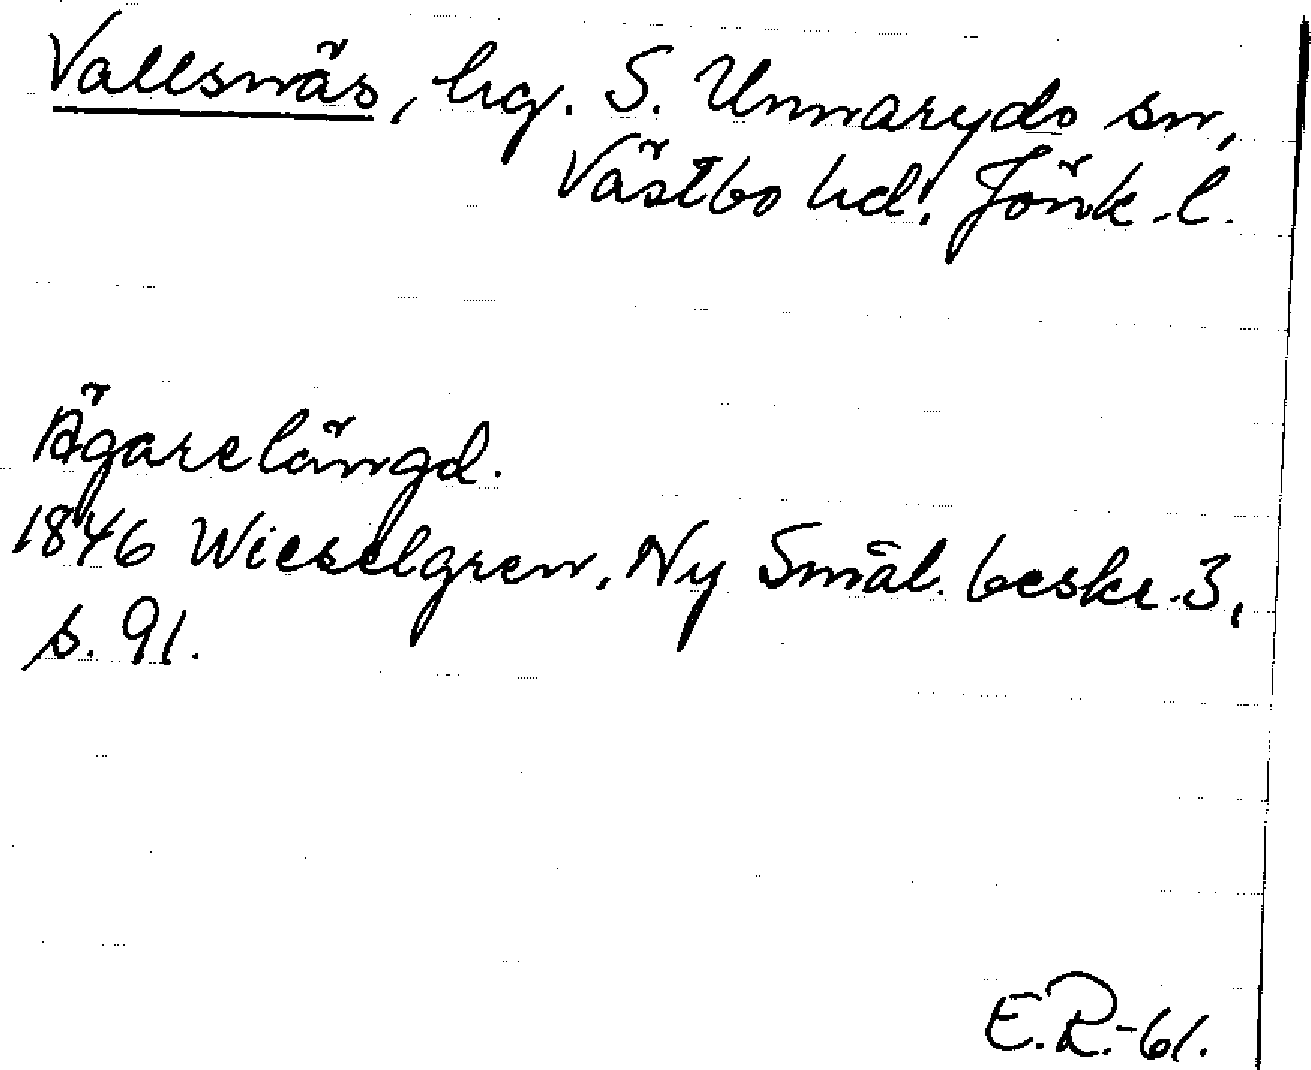 Vallsnäs, hg. S. Unnaryds sn,
Västbo hd. Jönk. l.
Ägarelängd.
1846 Wieselgren, Ny Smål. beskr. 3,
s. 91.
E.R.-61.